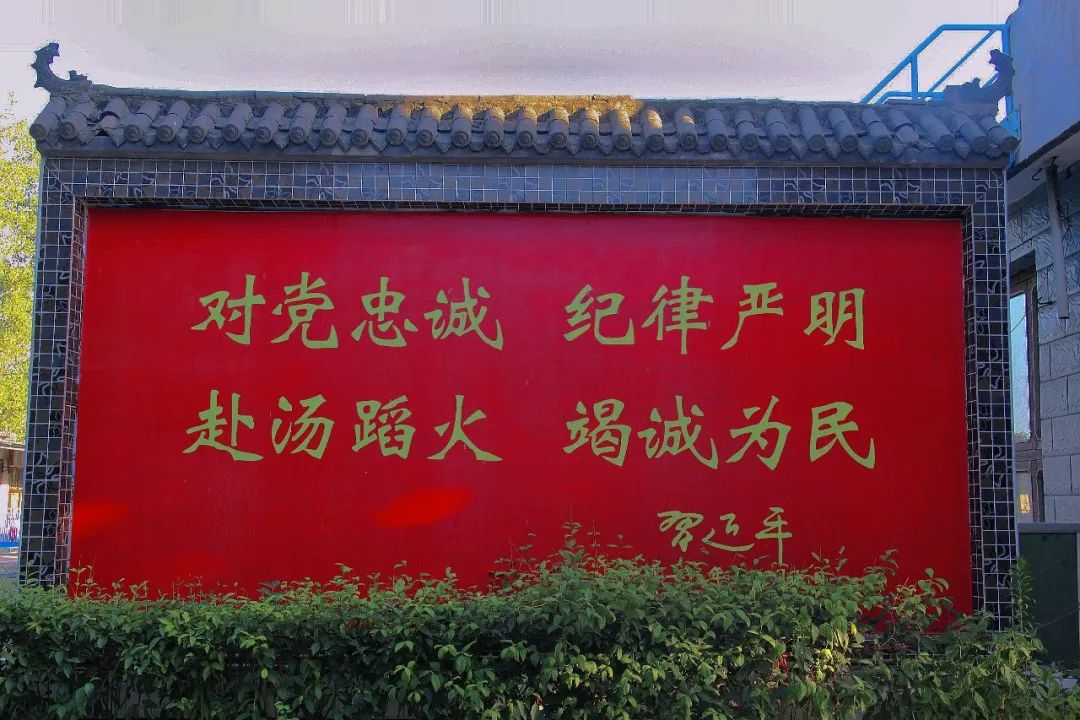 对党忠诚 纪律严明
赴汤蹈火 竭诚为民
习近平